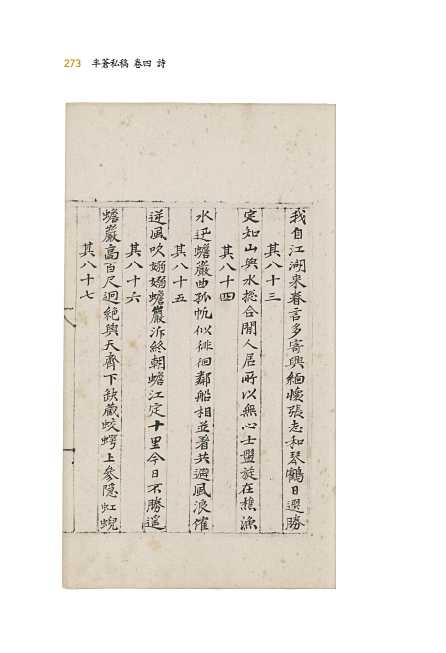 273 半蒼私稿 卷四 詩
我自江湖來眷言多寄興緬懷張志和琴鶴日選勝
其八十三
定知山與水摠合閒人居所以無心士盤旋在樵漁
其八十四
水迅蟾巖曲孤帆似徘徊鄰船相並着共避風浪催
其八十五
逆風吹嫋嫋蟾巖泝終朝蟾江定十里今日不勝遙
其八十六
蟾巖高百尺迥絶與天齊下缺藏蛟蠁上參隱虹蜺
其八十七